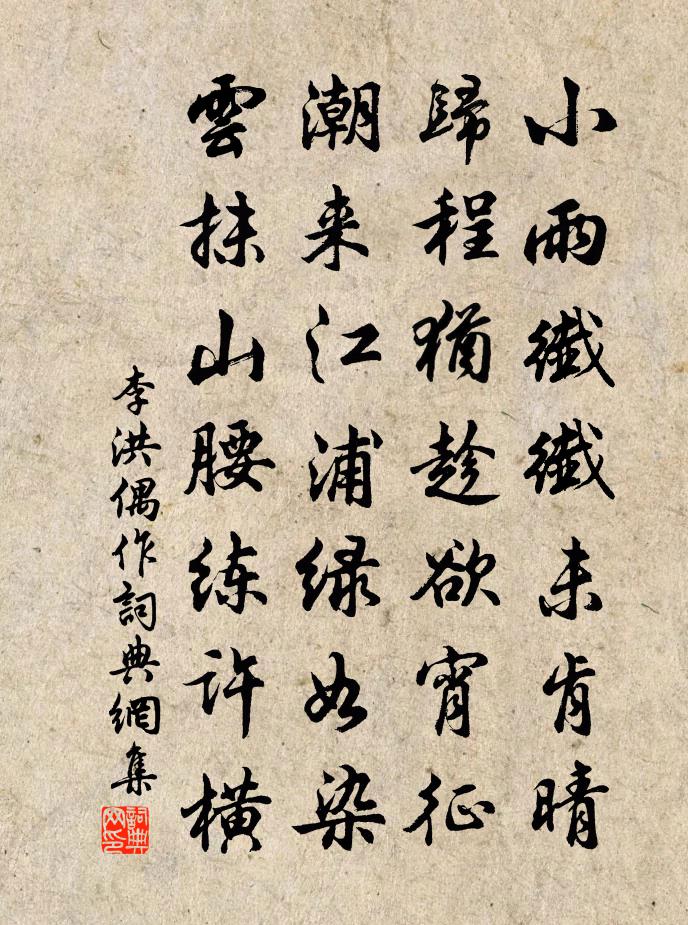 小雨纖纖未肯晴
歸程猶趁欲宵征
潮来江浦緑如染
雲抹山腰練許橫
李洪偶作詞典網集
詞典网印